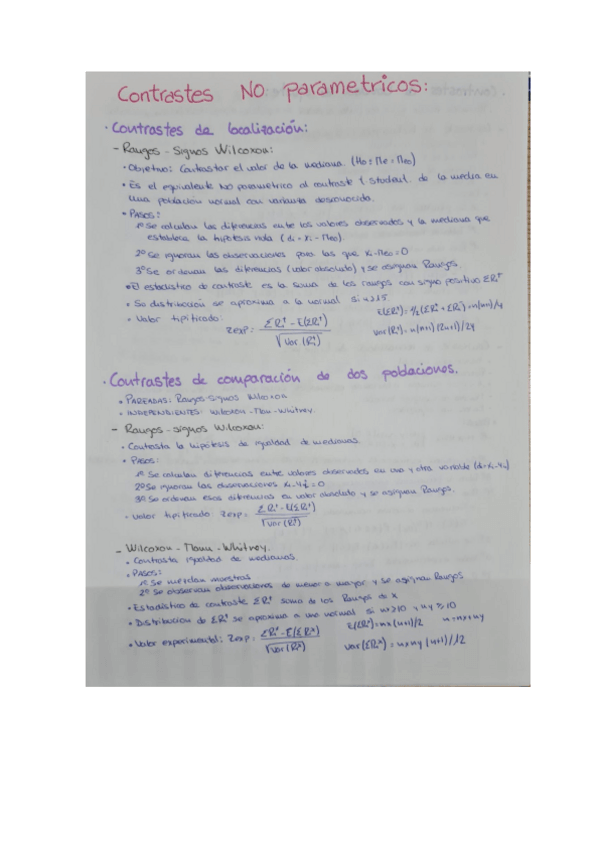 Contrastes NO parametricos:
· Contrastes de localización:
- Rangos - Signos Wilcoxon:
• Objetivo: Contrastar el valor de la mediana. (Ho: Me = Meo)
• Es el equivalente NO paramétrico al contraste t. Student. de la media en
una población normal con varianza desconocida.
• PASOS:
1º Se calculan las diferencias entre los valores observados y la mediana que
establece la hipótesis nula (di = xi - Meo).
2º Se ignoran las observaciones para las que xi - Meo = 0
3º Se ordenan las diferencias (valor absoluto) y se asignan Rangos.
• El estadístico de contraste es la suma de los rangos con signo positivo ΣRi⁺
• Su distribución se aproxima a la normal si n≥15
E(ΣRi⁺) = 1/2 (ΣRi⁺ + ΣRi⁻) = n(n+1)/4
• Valor tipificado:
Zexp = ΣRi⁺ - E(ΣRi⁺) / √Var (Ri⁺)
var (Ri⁺) = n(n+1) (2n+1)/24
· Contrastes de comparación de dos poblaciones.
• PAREADAS: Rangos-Signos Wilcoxon
• INDEPENDIENTES: Wilcoxon-Mann-Whitney
- Rangos - signos Wilcoxon:
• Contrasta la hipótesis de igualdad de medianas.
• PASOS:
1º Se calculan diferencias entre valores observados en una y otra variable (di = xi - yi)
2º Se ignoran las observaciones xi - yi = 0
3º Se ordenan esas diferencias en valor absoluto y se asignan Rangos.
• Valor tipificado: Zexp = ΣRi⁺ - E(ΣRi⁺) / √Var (Ri⁺)
- Wilcoxon - Mann - Whitney.
• Contrasta igualdad de medianas.
• PASOS:
1º Se mezclan muestras
2º Se observaciones de menor a mayor y se asignan Rangos
• Estadístico de contraste suma de los Rangos de X
• Distribución de se aproxima a una normal si nx≥10 y ny≥10
= nx (n+1)/2 n = nx + ny
• Valor experimental: Zexp =
= nx ny (n+1)/12